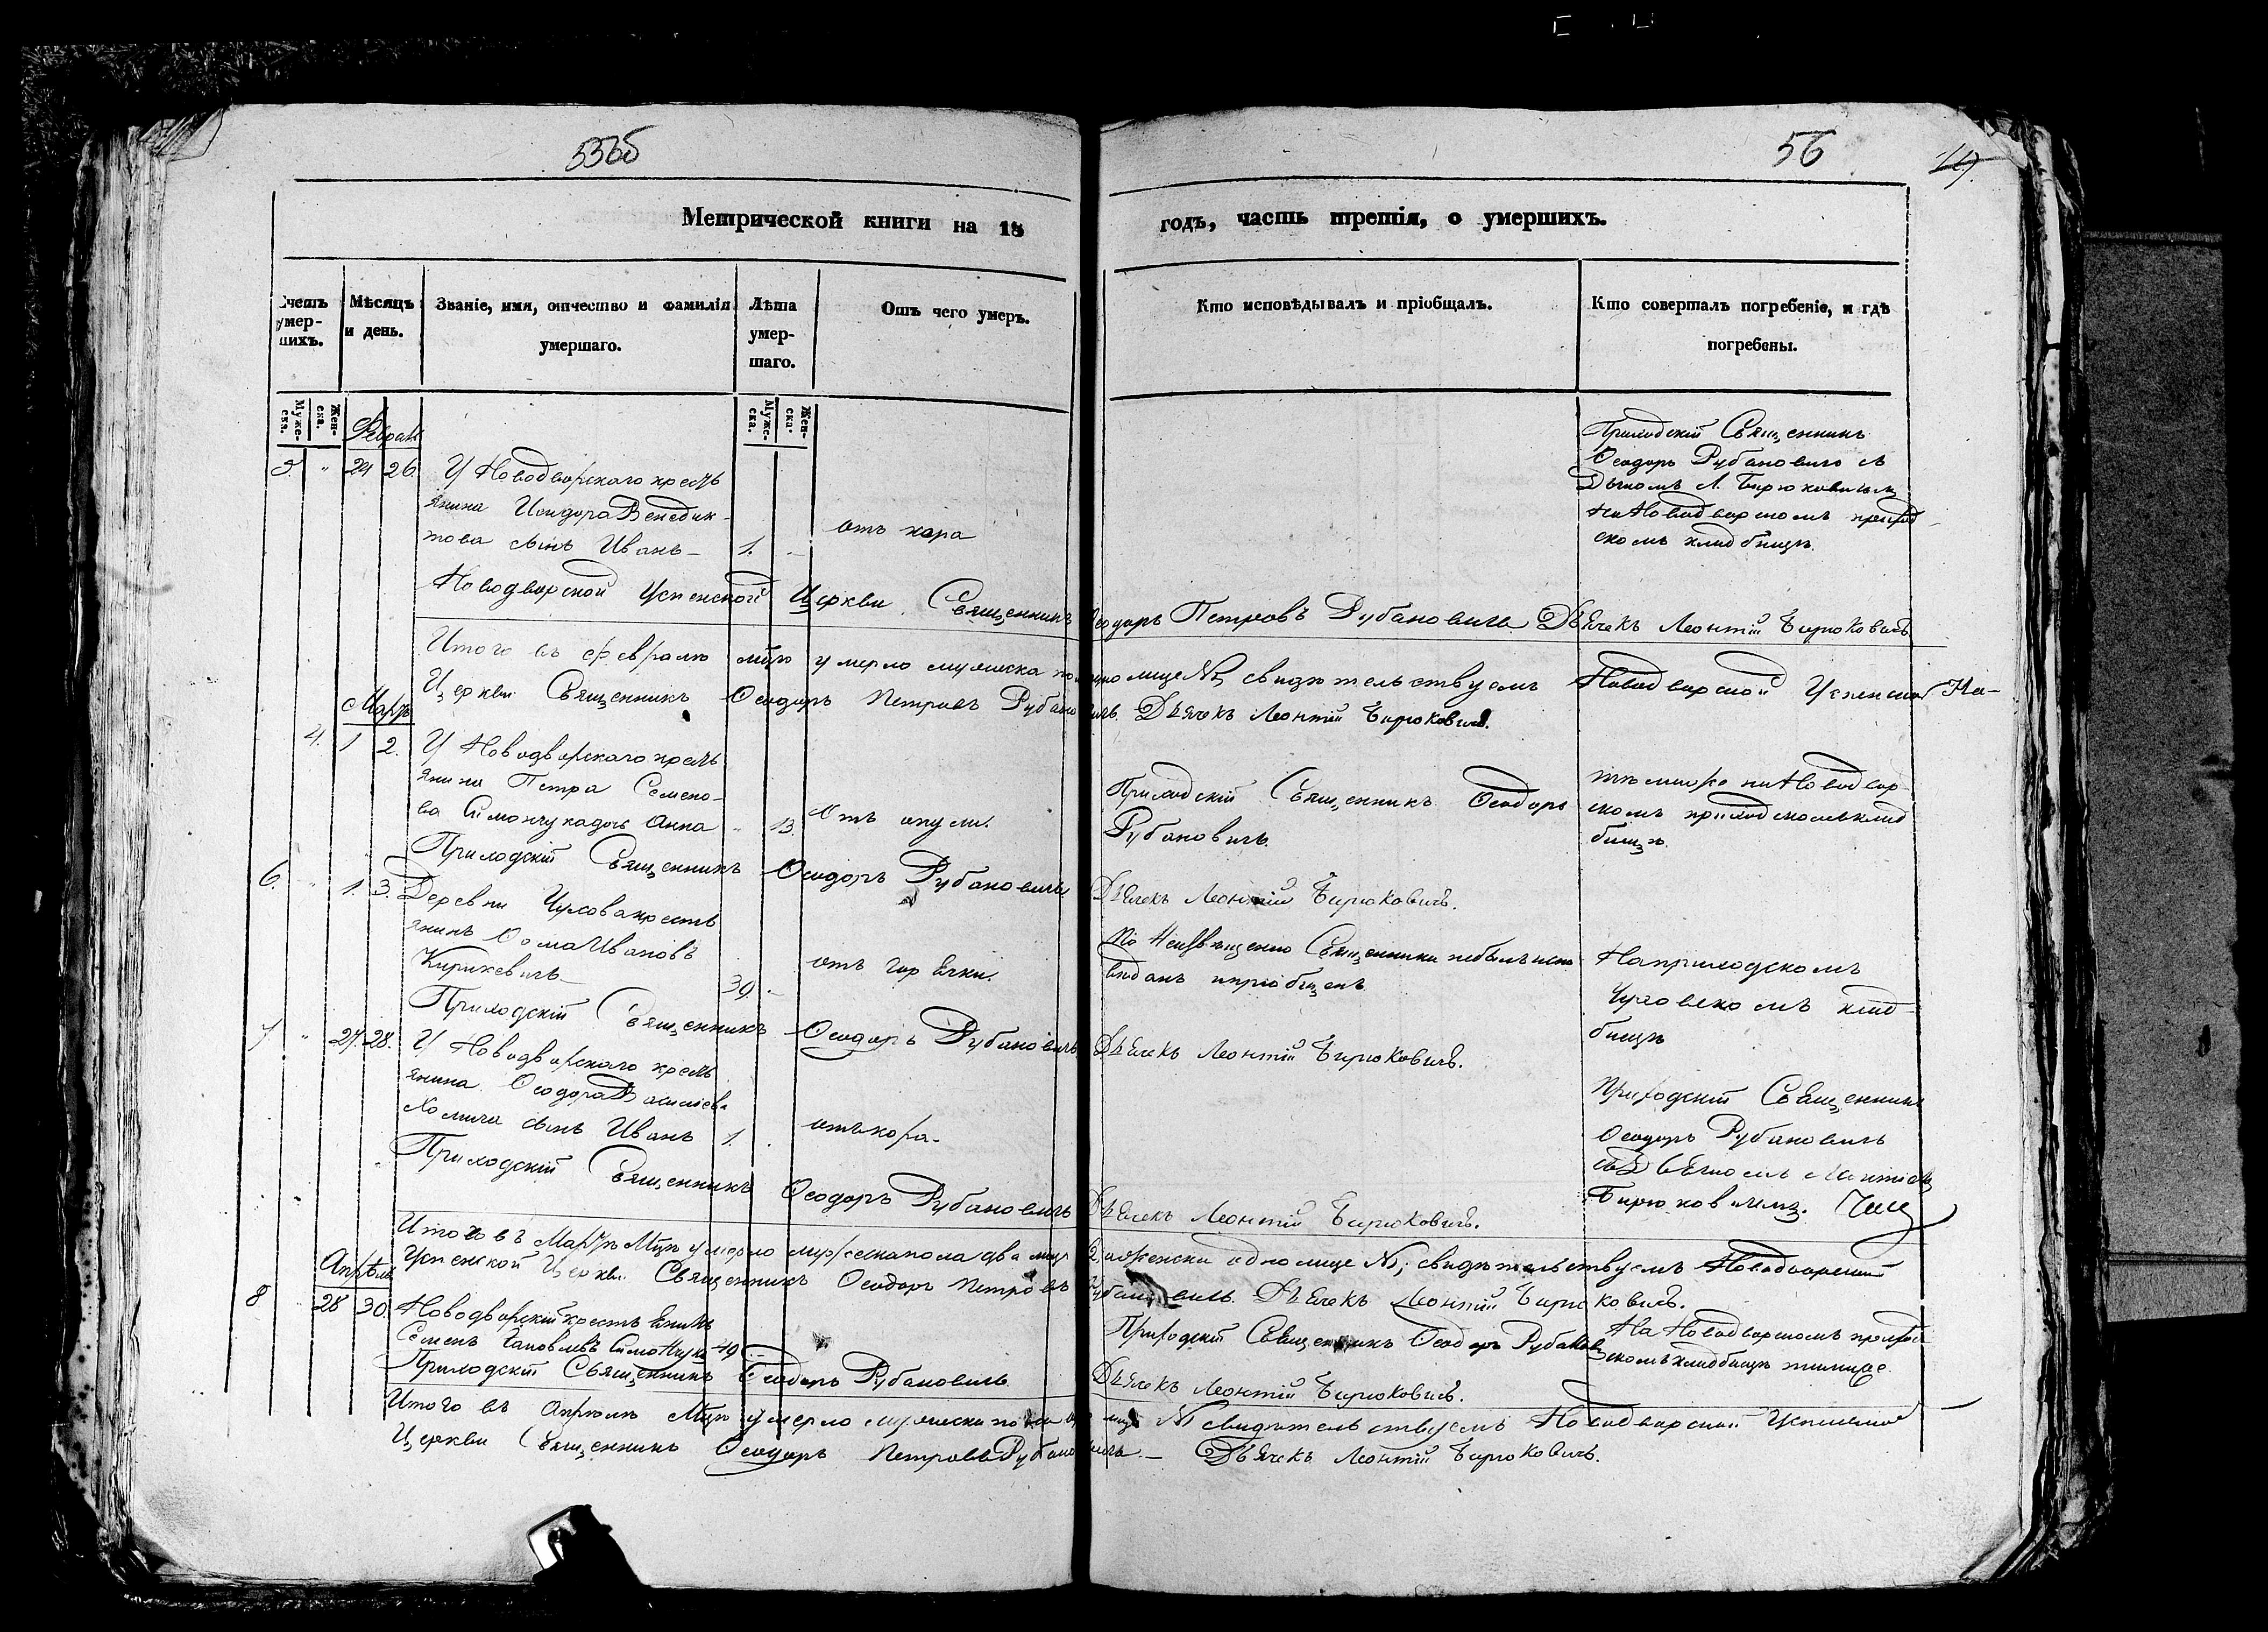 56
Метрической книги на 18 годъ, часть третія, о умершихъ.
Счетъ умер-шихъ.
Мѣсяцъ и день.
Званіе, имя, отчество и фамилія умершаго.
Лѣта умер-шаго.
Отъ чего умеръ.
Кто исповѣдывалъ и пріобщалъ.
Кто совершалъ погребеніе, и гдѣ погребены.
Муже-ска.
Жен-ска.
Муже-ска.
Жен-ска.
24 26.
У Новодворского кресть
янина Исидора Венедик-
това сынъ Иванъ
1.
отъ кора
Приходскій Священникъ
Ѳеодоръ Рубановичъ съ
Дьячкомъ Л. Бирюковичемъ
на Новодворскомъ приход-
скомъ кладбищѣ.
Новодворской Успенской Церкви Священникъ Ѳеодоръ Петровъ Рубановичъ Дьячекъ Леонтій Бирюковичъ
Итого въ Февралѣ мцѣ умерло мужеска пола одно лице №1, свидѣтельствуемъ Новодворской Успенской
Церкви Священникъ Ѳеодоръ Петровъ Рубановичъ. Дьячекъ Леонтій Бирюковичъ.
Мартъ
4. 1 2.
У Новодворского кресть
янина Петра Семено-
ва Симончука дочь Анна
13.
Отъ
Приходскій Священникъ Ѳеодоръ
Рубановичъ.
на Новодвор-
скомъ приходскомъ клад
бищѣ.
Приходскій Священникъ Ѳеодоръ Рубановичъ. Дьячекъ Леонтій Бирюковичъ.
6. 1. 3.
Деревни кресть
янинъ Ѳома Ивановъ
Кирикевичъ
39.
отъ горячки.
По Неизвѣщенію Священника небылъ испо
вѣданъ и пріобщенъ
На приходскомъ
клад-
бищѣ
Приходскій Священникъ Ѳеодоръ Рубановичъ Дьячекъ Леонтій Бирюковичъ.
7 27. 28.
У Новодворского кресть
янина Ѳеодора Васильева
Хомича сынъ Иванъ
1.
отъ кора.
Приходскій Священникъ
Ѳеодоръ Рубановичъ
съ Дьячкомъ Леонтіемъ
Бирюковичемъ.
Приходскій Священникъ Ѳеодоръ Рубановичъ Дьячекъ Леонтій Бирюковичъ.
Итого въ Мартѣ Мцѣ умерло мужеска пола два лица, а женска одно лице №1, свидѣтельствуемъ Новодворской
Успенской Церкви Священникъ Ѳеодоръ Петровъ Рубановичъ. Дьячекъ Леонтій Бирюковичъ.
Апрѣль
8 28 30.
Новодворскій крестьянинъ
Семенъ Симончукъ 49
Приходскій Священникъ Ѳеодоръ Рубановичъ
На Новодворскомъ приход-
скомъ кладбищѣ
Приходскій Священникъ Ѳеодоръ Рубановичъ Дьячекъ Леонтій Бирюковичъ.
Итого въ Апрѣлѣ Мцѣ умерло мужеска пола одно лице №1 свидѣтельствуемъ Новодворской Успенской
Церкви Священникъ Ѳеодоръ Петровъ Рубановичъ.— Дьячекъ Леонтій Бирюковичъ.